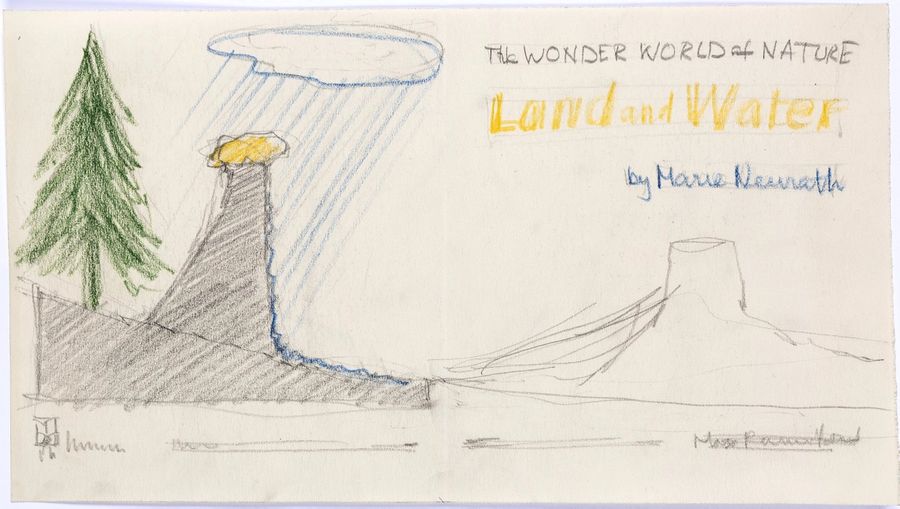 The WONDER WORLD of NATURE
Land and Water
by Marie Neurath
Max Parrish